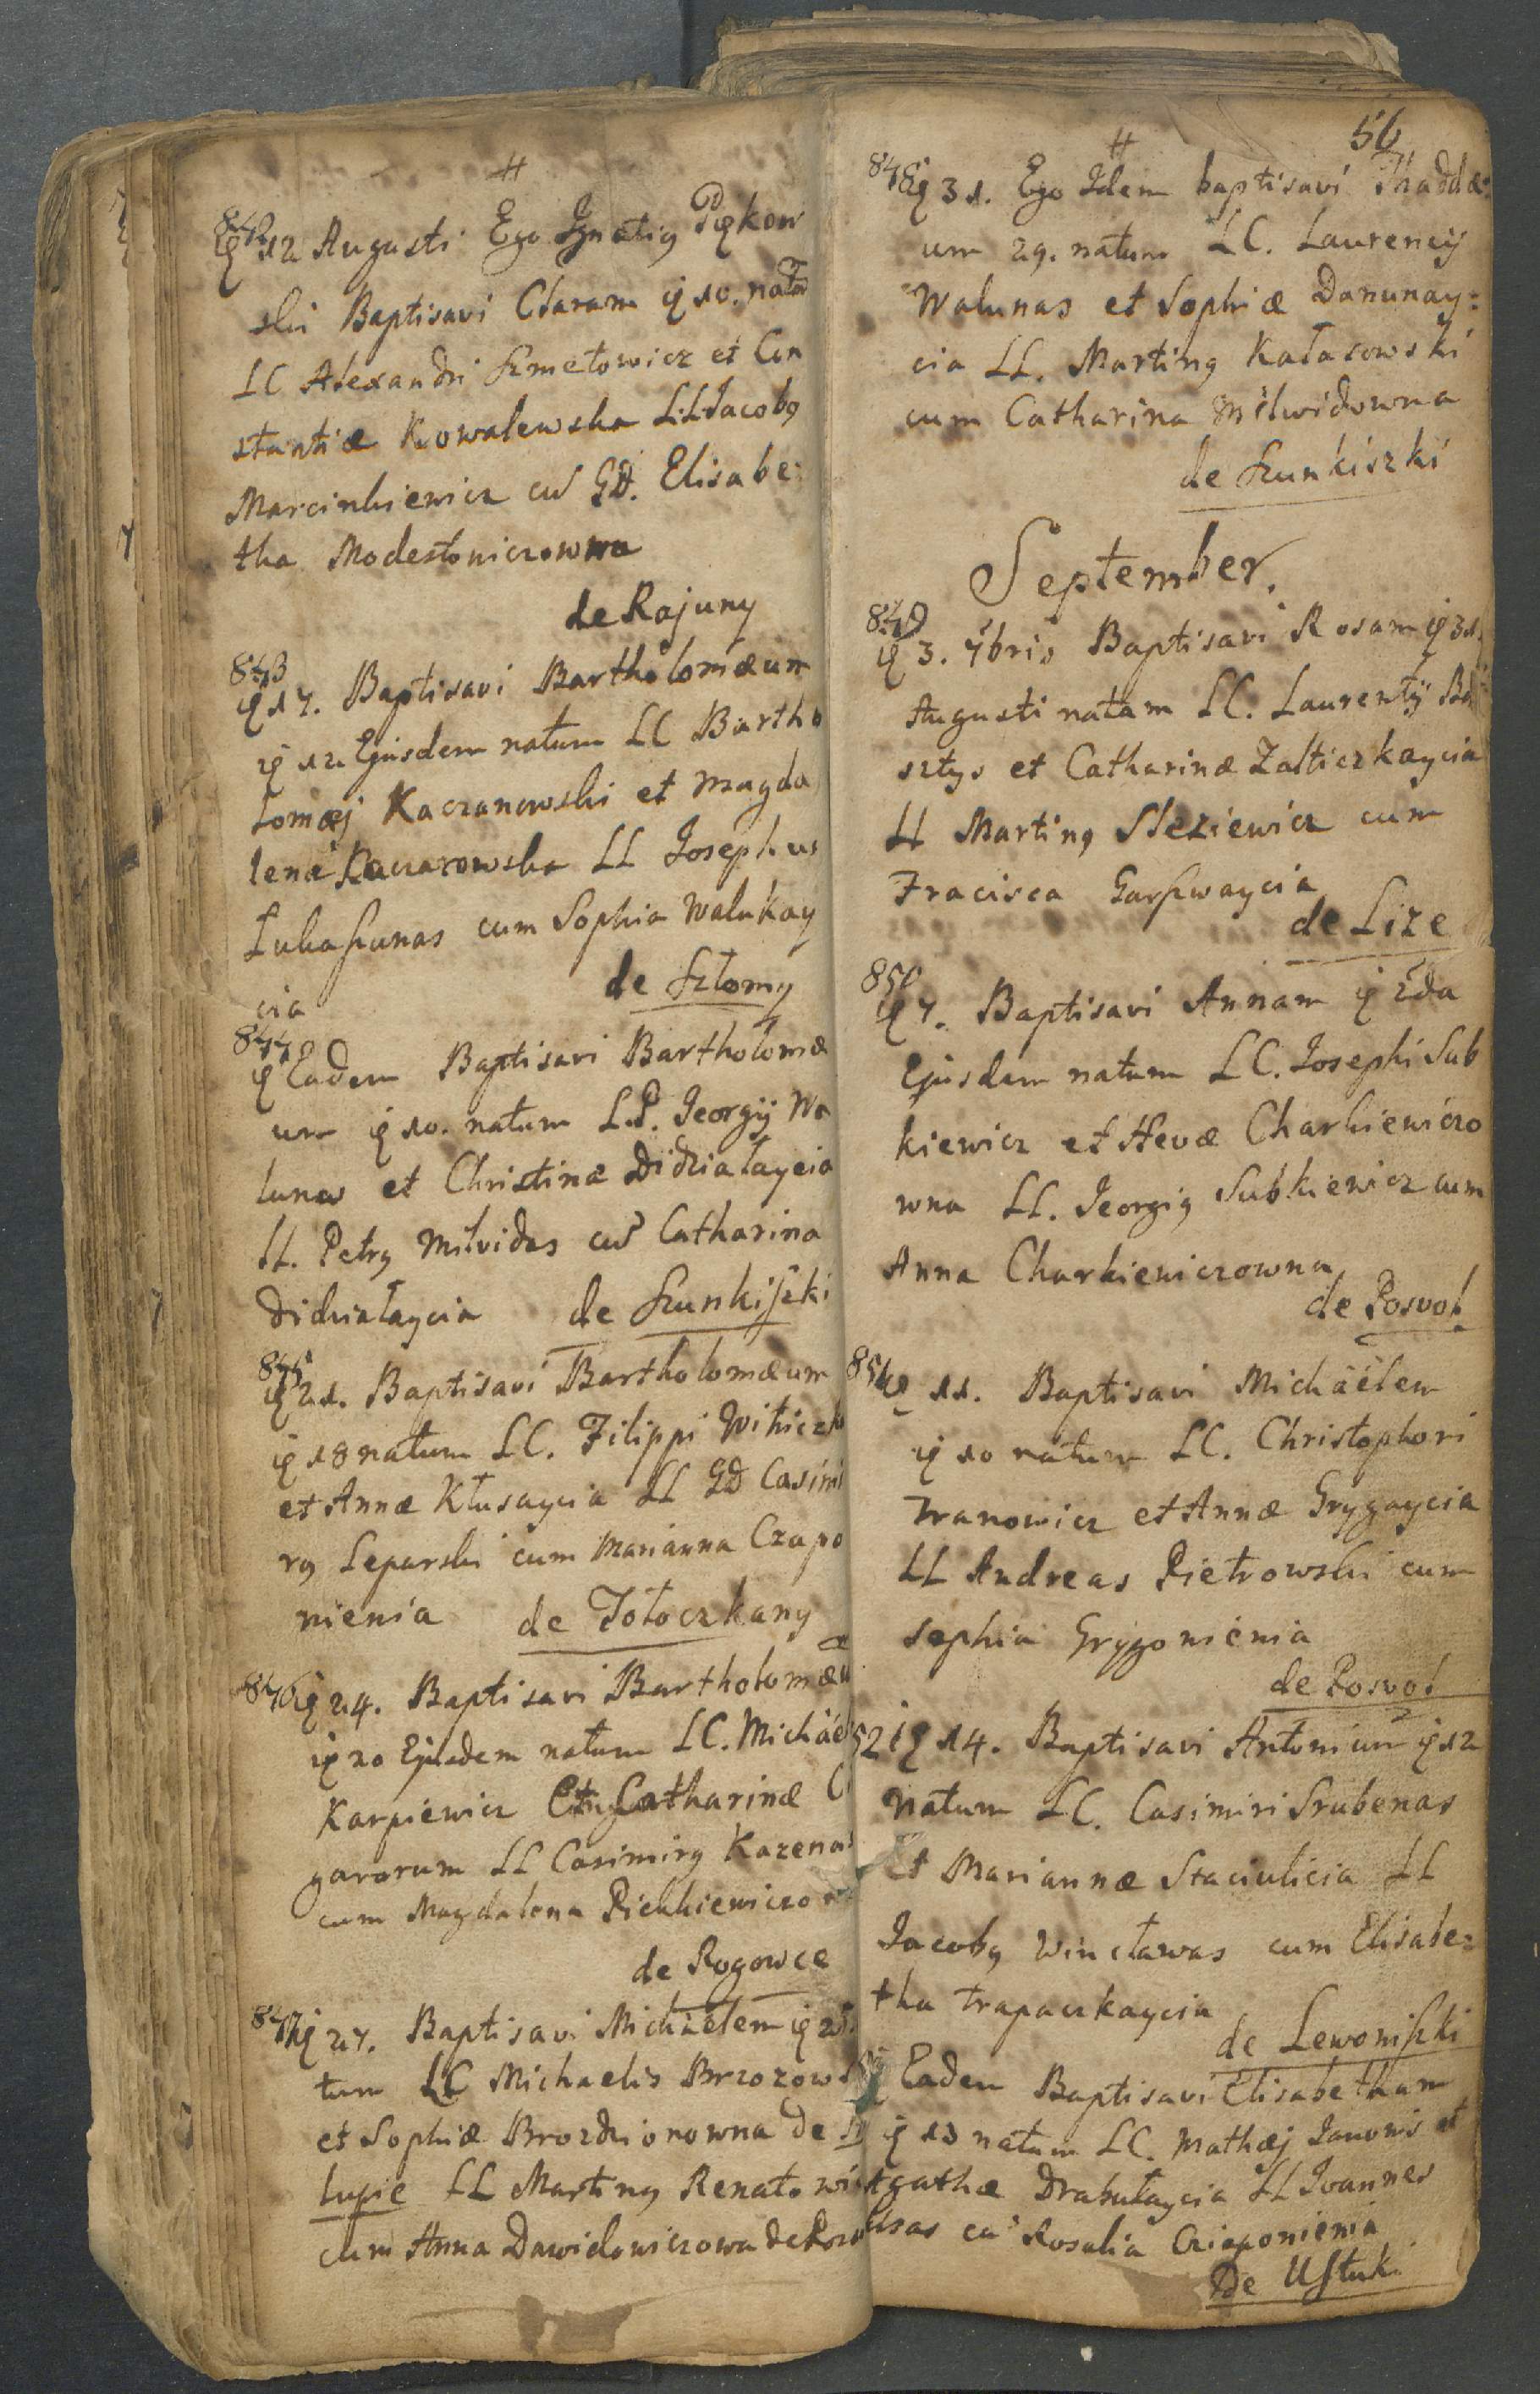 842
12 Augusti Ego Ignatiq Piękow
ski Baptisavi Claram 10. nata
LC Alexandri Szmetowicz et Con
stantiæ Kowalewska LL Jacobq
Marcinkiewicz cu GD. Elisabe:
tha Modestowiczowna
de Rajuny
843
17. Baptisavi Bartholomæum
12 Ejusdem natum LC Bartho
lomæj Kaczanowski et Magda
lenæ LL Josephus
Lukaszunas cum Sophia Walukay
cia de Szłomy
844
Eadem Baptisavi Bartholomæ
um 10. natum L.P. Georgij Wa
lunas et Christinæ Didziałaycia
LL. Petrq Milvidas cu Catharina
Didziałaycia de Szunkiszki
845
21. Baptisavi Bartholomæum
18 natum LC. Filippi
et Annæ Kłusaycia LL GD Casimi
rq Leparski cum Marianna Czapo
nienia de Tołoczkany
846
24. Baptisavi Bartholomæu
20 Ejusdem natum LC. Michäel
Karpiewicz Catharinæ
garorum LL Casimirq Kazenas
cum Magdalena
de Rogowce
847
27. Baptisavi Michäelem
tum LC Michaelis Brzozows
et Sophiæ Brozdzionowna de
lupie LL Martinq Renatowi
cum Anna Dawidowiczowa de
56
848
31. Ego Idem baptisavi Thaddæ:
um 29. natum LC. Laurencij
Walunas et Sophiæ Danunay:
cia LL. Martinq Katasowski
cum Catharina Milwidowna
de Szunkiszki
September.
849
3. 7bris Baptisavi Rosam 31
Augusti natam LC. Laurentij
sztys et Catharinæ Zalticzkaycia
LL Martinq Sleziewicz cum
Fracisca Garszwaycia
de Lize
850
7. Baptisavi Annam 2da
Ejusdem natam LC. Josephi Sub
kiewicz et Hevæ Charkiewiczo
wna LL. Georgiq Subkiewicz cum
Anna Charkiewiczowna
de Posvol
851
11. Baptisavi Michäëlem
10 natum LC. Christophori
Iwanowicz et Annæ Grygaycia
LL Andreas Pietrowski cum
Sophia Grygonienia
de Posvol
52 14. Baptisavi Antonium 12
natum LC. Casimiri Srubenas
Et Mariannæ Staciulicia LL
Jacobq Wincławas cum Elisabe:
tha Trapaczkaycia
de Lewoniszki
Eadem Baptisavi Elisabetham
13 natam LC. Mathæj Janowis et
Agathæ Drabułaycia LL Ioannes
cu Rosalia Cziaponienia
De Usztuki